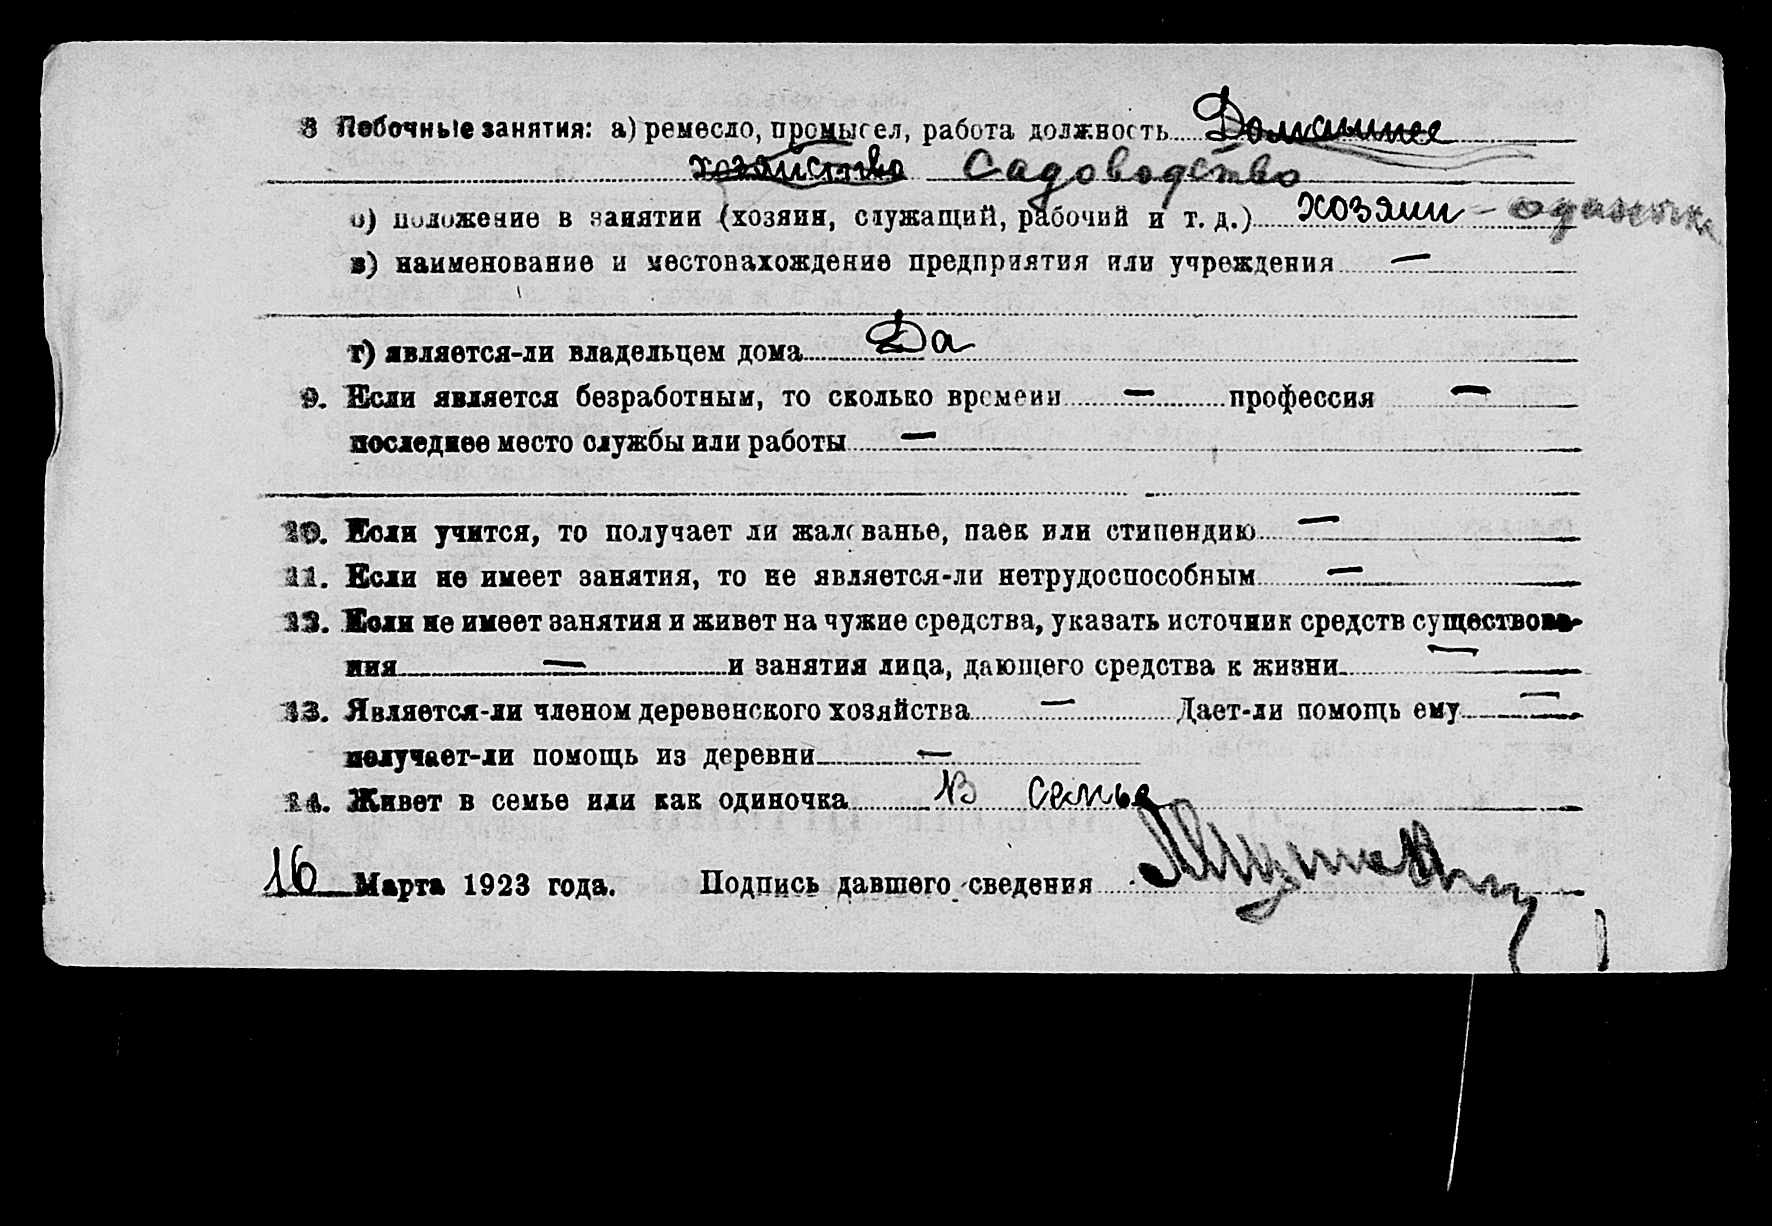 8 Побочные занятия: а) ремесло, промысел, работа должность Домашнее
хозяйство Садоводство
б) положение в занятии (хозяин, служащий, рабочий и т. д.) хозяин - одиночка
в) наименование и местонахождение предприятия или учреждения —
г) является-ли владельцем дома Да
9. Если является безработным, то сколько времени — профессия —
последнее место службы или работы —
10. Если учится, то получает ли жалованье, паек или стипендию —
11. Если не имеет занятия, то не является-ли нетрудоспособным —
12. Если не имеет занятия и живет на чужие средства, указать источник средств существова-
ния — и занятия лица, дающего средства к жизни —
13. Является-ли членом деревенского хозяйства — Дает-ли помощь ему —
получает-ли помощь из деревни —
14. Живет в семье или как одиночка В семье
16 Марта 1923 года. Подпись давшего сведения